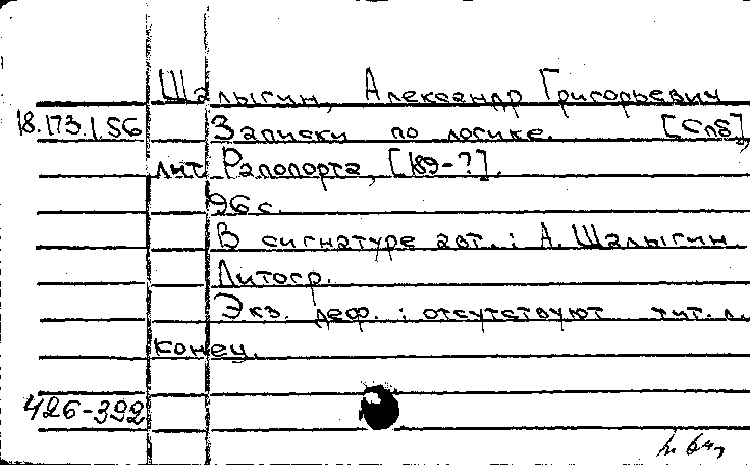 Шалыгин, Александр Григорьевич
18.173.1.56 Записки по логике. [Спб],
лит. Рапопорта, [189-?].
96 с.
В сигнатуре авт.: А. Шалыгин.
Литогр.
Экз. деф.: отсутствуют тит. л.
конец.
426-392